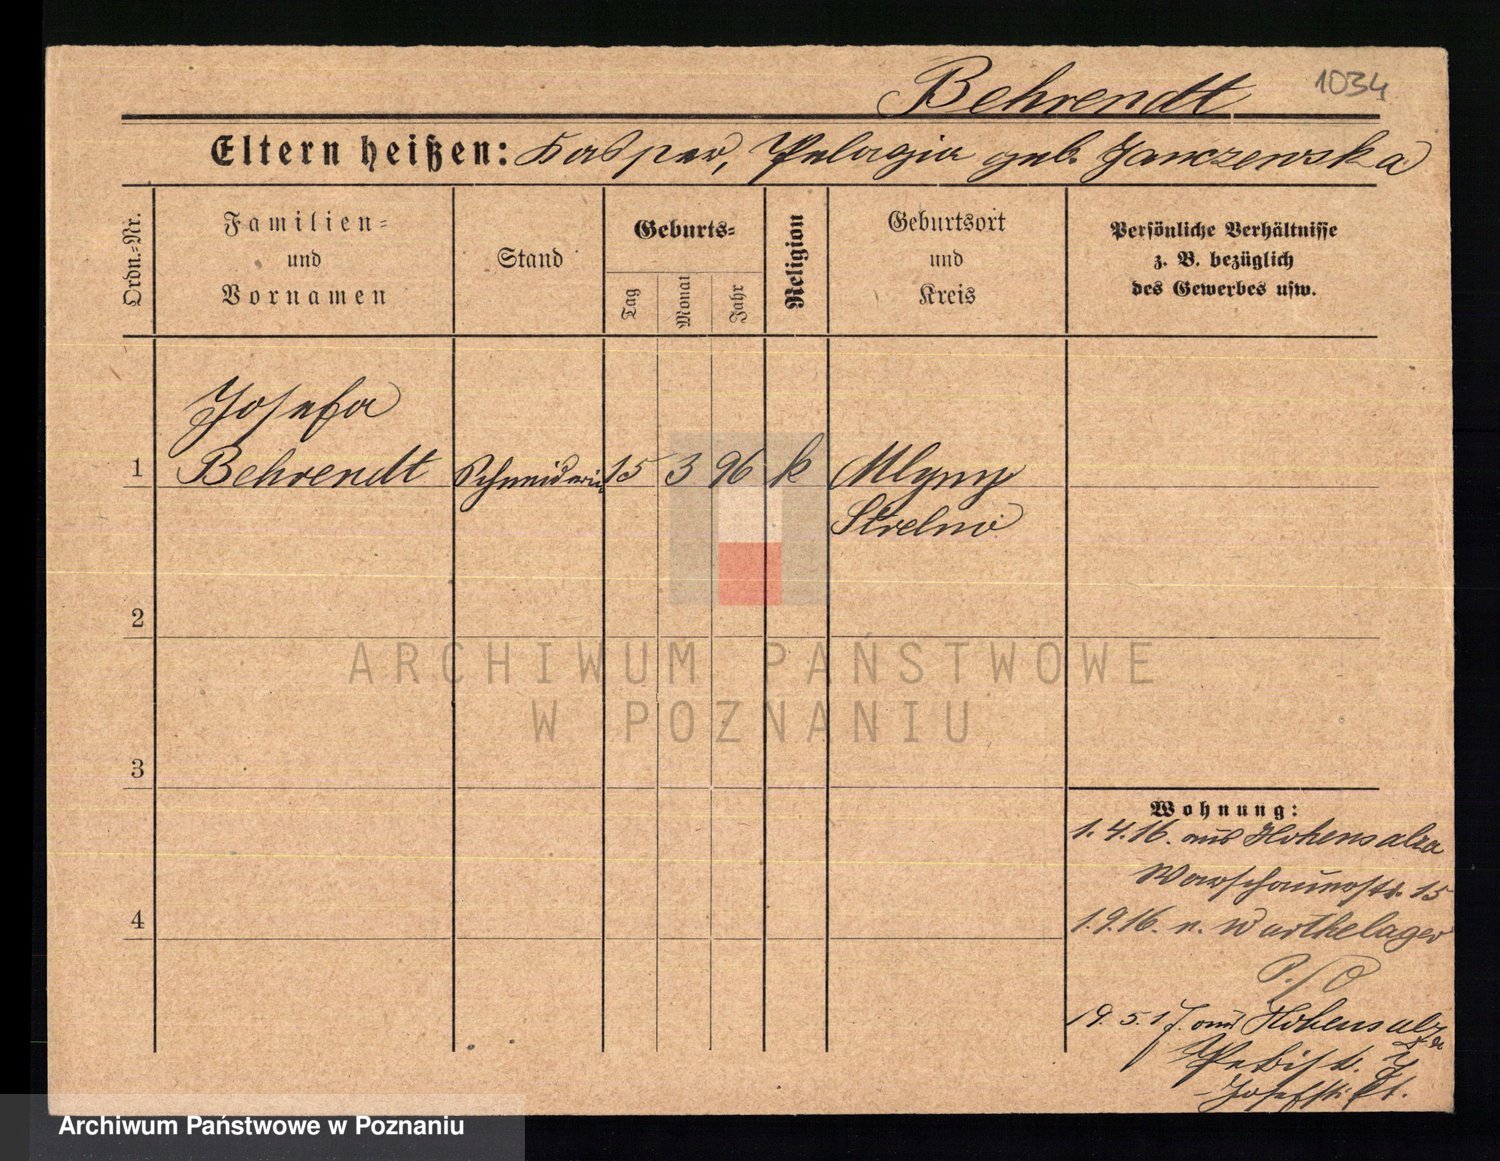 Behrendt 1034
Eltern heißen: Kasper, Pelagia geb. Janczewska
Ordn.=Nr.
Familien=
und
Vornamen
Stand
Geburts=
Tag
Monat
Jahr
Religion
Geburtsort
und
Kreis
Persönliche Verhältnisse
z. B. bezüglich
des Gewerbes usw.
Josefa
1 Behrendt Schneiderin 15 3 96 k Mlyny
Strelno
2
ARCHIWUM PAŃSTWOWE
W POZNANIU
3
Wohnung:
1.4.16. aus Hohensalza
Warschauerstr. 15
4
1.9.16. n. Warthelager
19.5.17. aus Hohensalza
Archiwum Państwowe w Poznaniu